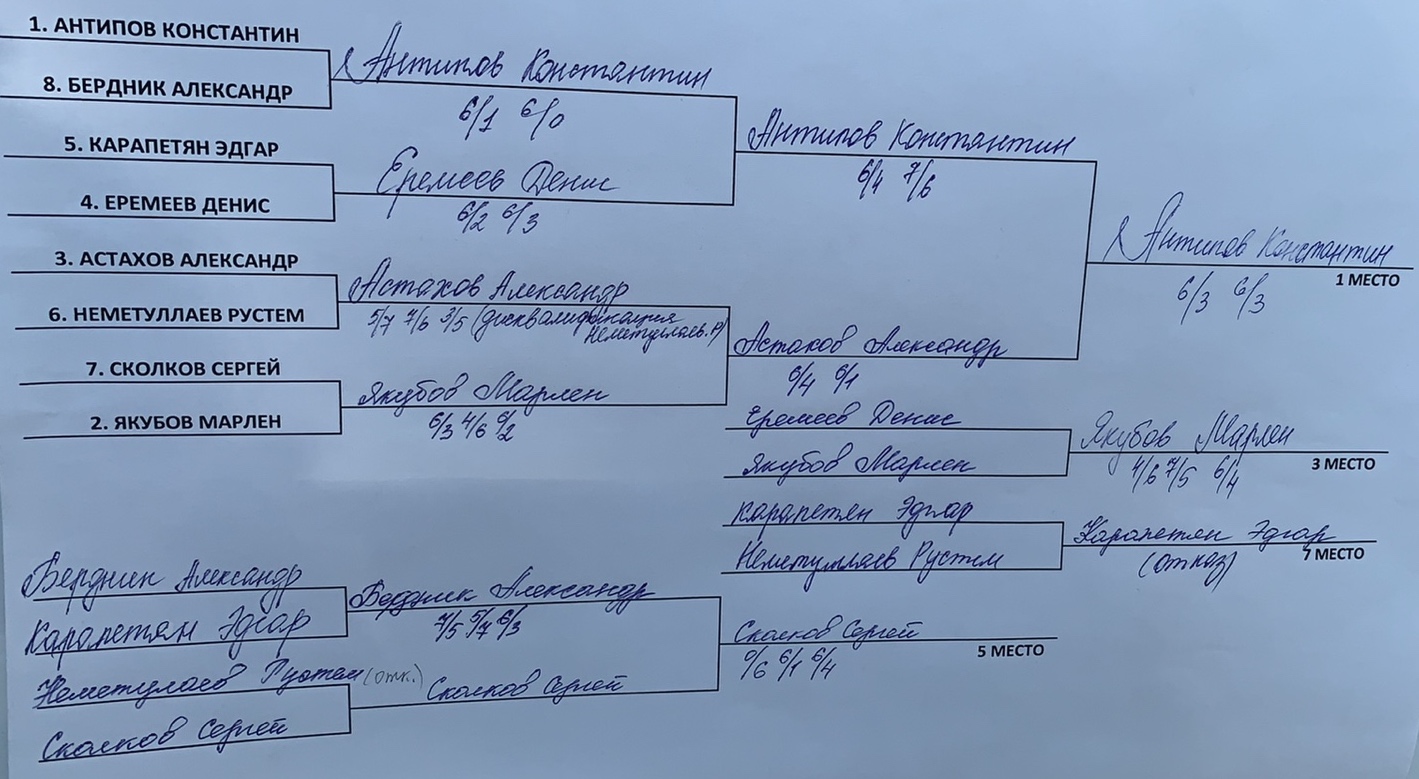 1. АНТИПОВ КОНСТАНТИН
8. БЕРДНИК АЛЕКСАНДР
5. КАРАПЕТЯН ЭДГАР
4. ЕРЕМЕЕВ ДЕНИС
3. АСТАХОВ АЛЕКСАНДР
6. НЕМЕТУЛЛАЕВ РУСТЕМ
7. СКОЛКОВ СЕРГЕЙ
2. ЯКУБОВ МАРЛЕН
Антипов Константин
6/1 6/0
Еремеев Денис
6/2 6/3
Астахов Александр
5/7 7/6 3/5 (дисквалификация
Неметуллаев. Р)
Якубов Марлен
6/3 4/6 6/2
Антипов Константин
6/4 7/6
Астахов Александр
6/4 6/1
Антипов Константин
1 МЕСТО
6/3 6/3
Еремеев Денис
Якубов Марлен
Якубов Марлен
3 МЕСТО
4/6 7/5 6/4
Карапетян Эдгар
Неметуллаев Рустем
Карапетян Эдгар
7 МЕСТО
(отказ)
Бердник Александр
Карапетян Эдгар
Неметулаев Рустем (отк.)
Сколков Сергей
Бердник Александр
7/5 5/7 6/3
Сколков Сергей
Сколков Сергей
5 МЕСТО
0/6 6/1 6/4